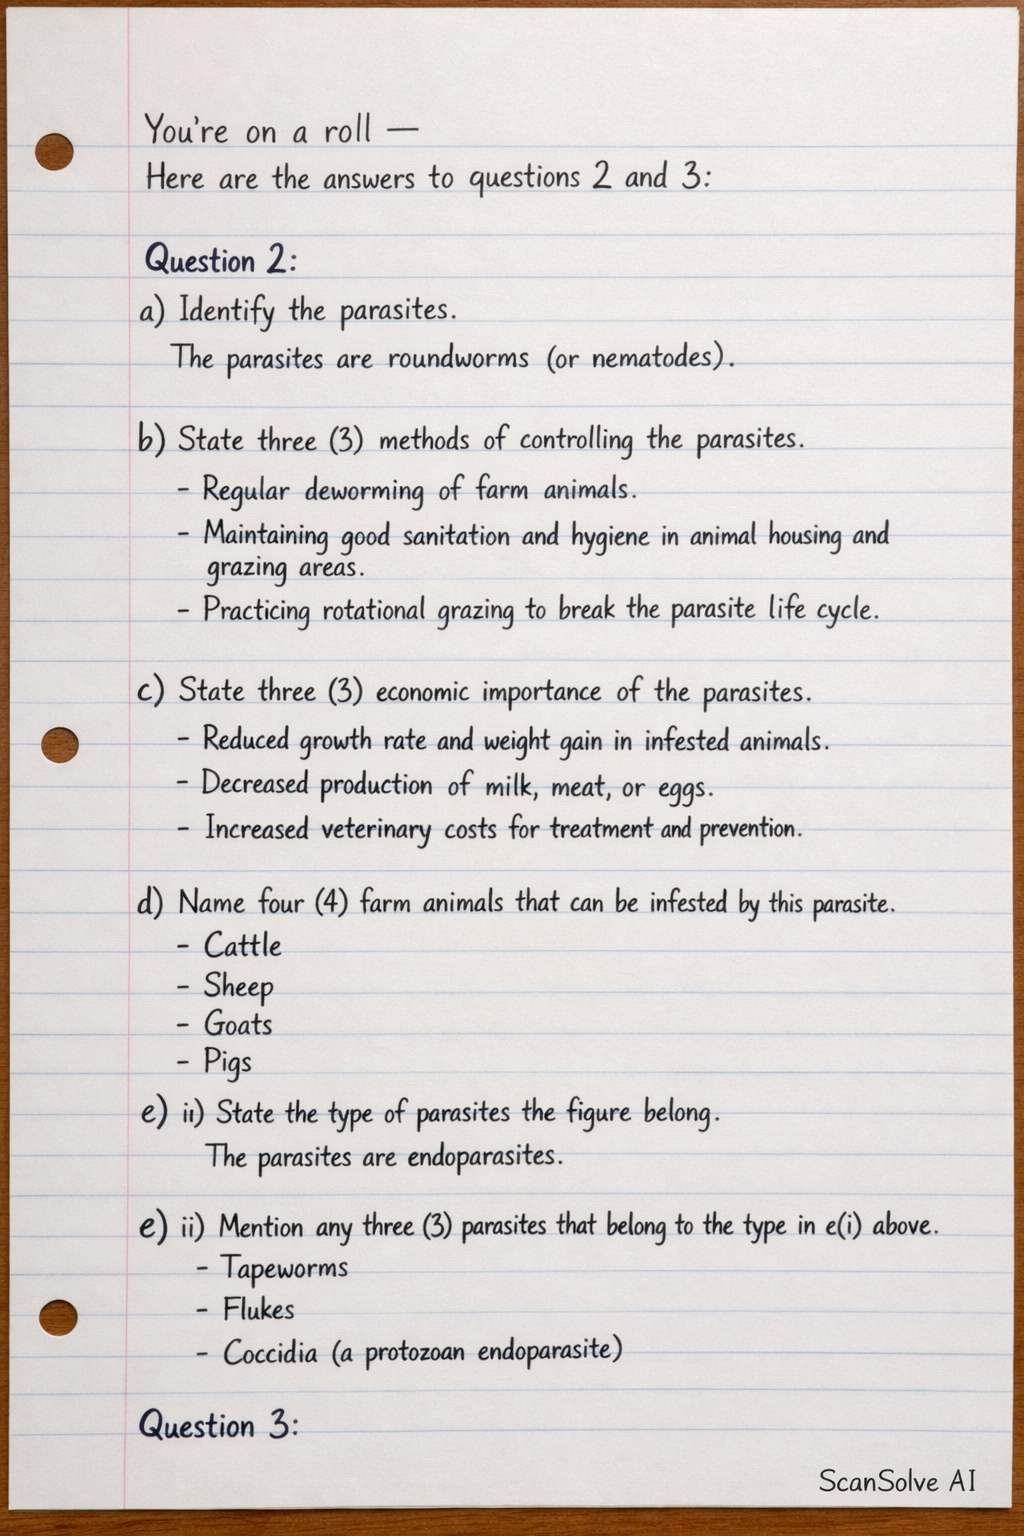 You're on a roll —
Here are the answers to questions 2 and 3:
Question 2:
a) Identify the parasites.
The parasites are roundworms (or nematodes).
b) State three (3) methods of controlling the parasites.
- Regular deworming of farm animals.
- Maintaining good sanitation and hygiene in animal housing and
grazing areas.
- Practicing rotational grazing to break the parasite life cycle.
c) State three (3) economic importance of the parasites.
- Reduced growth rate and weight gain in infested animals.
- Decreased production of milk, meat, or eggs.
- Increased veterinary costs for treatment and prevention.
d) Name four (4) farm animals that can be infested by this parasite.
- Cattle
- Sheep
- Goats
- Pigs
e) ii) State the type of parasites the figure belong.
The parasites are endoparasites.
e) ii) Mention any three (3) parasites that belong to the type in e(i) above.
- Tapeworms
- Flukes
- Coccidia (a protozoan endoparasite)
Question 3:
ScanSolve AI